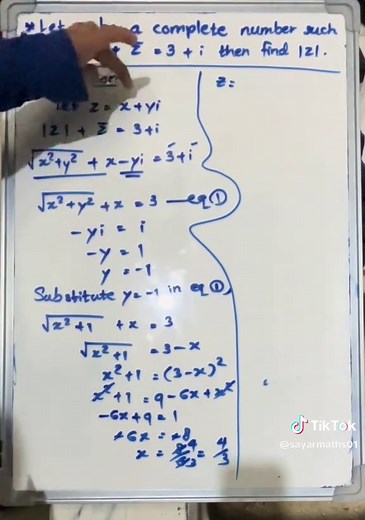 * Let a complete number such
+ z̅ = 3 + i then find |z|.
z =
let z = x + yi
|z| + z̅ = 3+i
√x²+y² + x - yi = 3 + i
√x²+y² + x = 3 — eq ①
- yi = i
- y = 1
y = -1
Substitute y = -1 in eq ①,
√x²+1 + x = 3
√x²+1 = 3 - x
x²+1 = (3-x)²
x²+1 = 9 - 6x + x²
-6x + 9 = 1
-6x = -8
x = 8/6 4/3 = 4/3
TikTok
@sayarmaths01